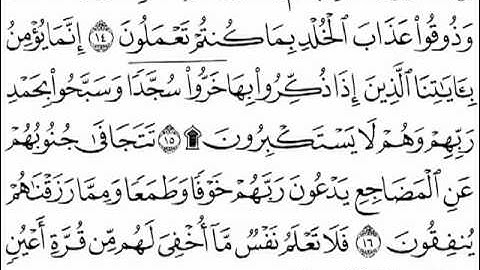 وَذُوقُوا۟ عَذَابَ ٱلْخُلْدِ بِمَا كُنتُمْ تَعْمَلُونَ ١٤ إِنَّمَا يُؤْمِنُ
بِـَٔايَـٰتِنَا ٱلَّذِينَ إِذَا ذُكِّرُوا۟ بِهَا خَرُّوا۟ سُجَّدًا وَسَبَّحُوا۟ بِحَمْدِ
رَبِّهِمْ وَهُمْ لَا يَسْتَكْبِرُونَ ۩ ١٥ تَتَجَافَىٰ جُنُوبُهُمْ
عَنِ ٱلْمَضَاجِعِ يَدْعُونَ رَبَّهُمْ خَوْفًا وَطَمَعًا وَمِمَّا رَزَقْنَـٰهُمْ
يُنفِقُونَ ١٦ فَلَا تَعْلَمُ نَفْسٌ مَّآ أُخْفِىَ لَهُم مِّن قُرَّةِ أَعْيُنٍ